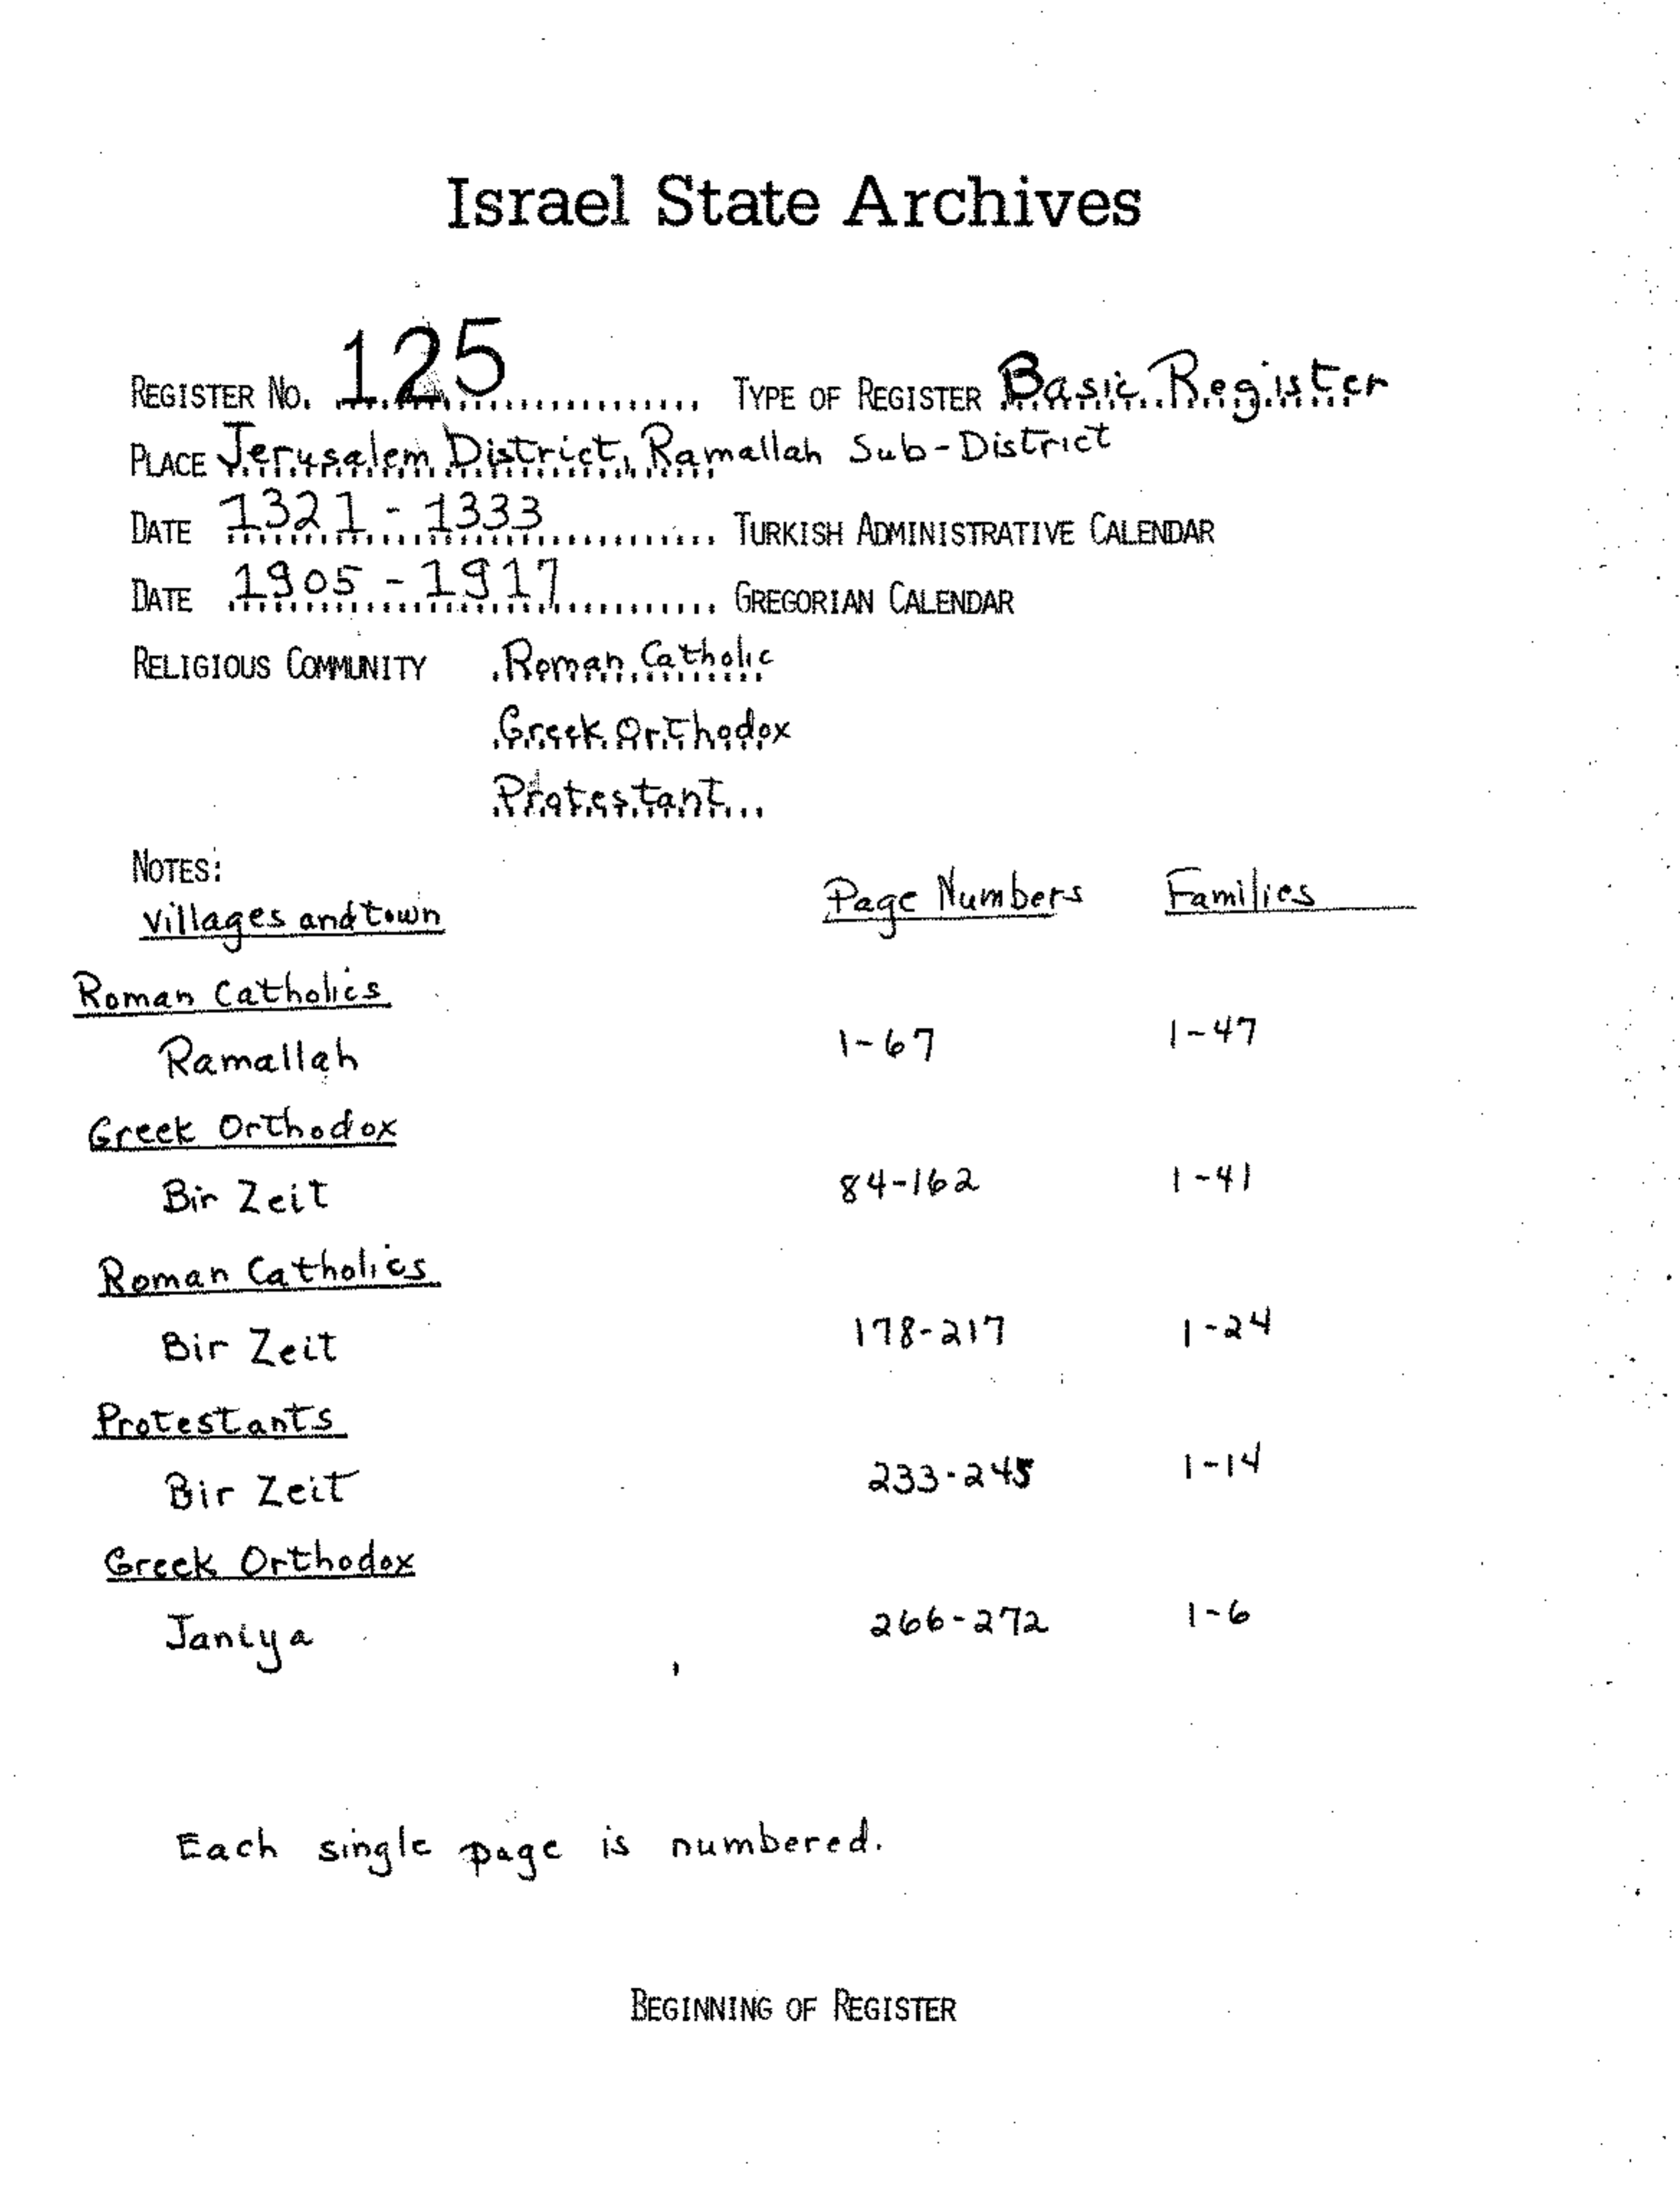 Israel State Archives
REGISTER NO. 125 TYPE OF REGISTER Basic Register
PLACE Jerusalem District, Ramallah Sub-District
DATE 1321 - 1333 TURKISH ADMINISTRATIVE CALENDAR
DATE 1905 - 1917 GREGORIAN CALENDAR
RELIGIOUS COMMUNITY Roman Catholic
Greek Orthodox
Protestant
NOTES:
Villages and town Page Numbers Families
Roman Catholics
Ramallah 1-67 1-47
Greek Orthodox
Bir Zeit 84-162 1-41
Roman Catholics
Bir Zeit 178-217 1-24
Protestants
Bir Zeit 233-245 1-14
Greek Orthodox
Janiya 266-272 1-6
Each single page is numbered.
BEGINNING OF REGISTER